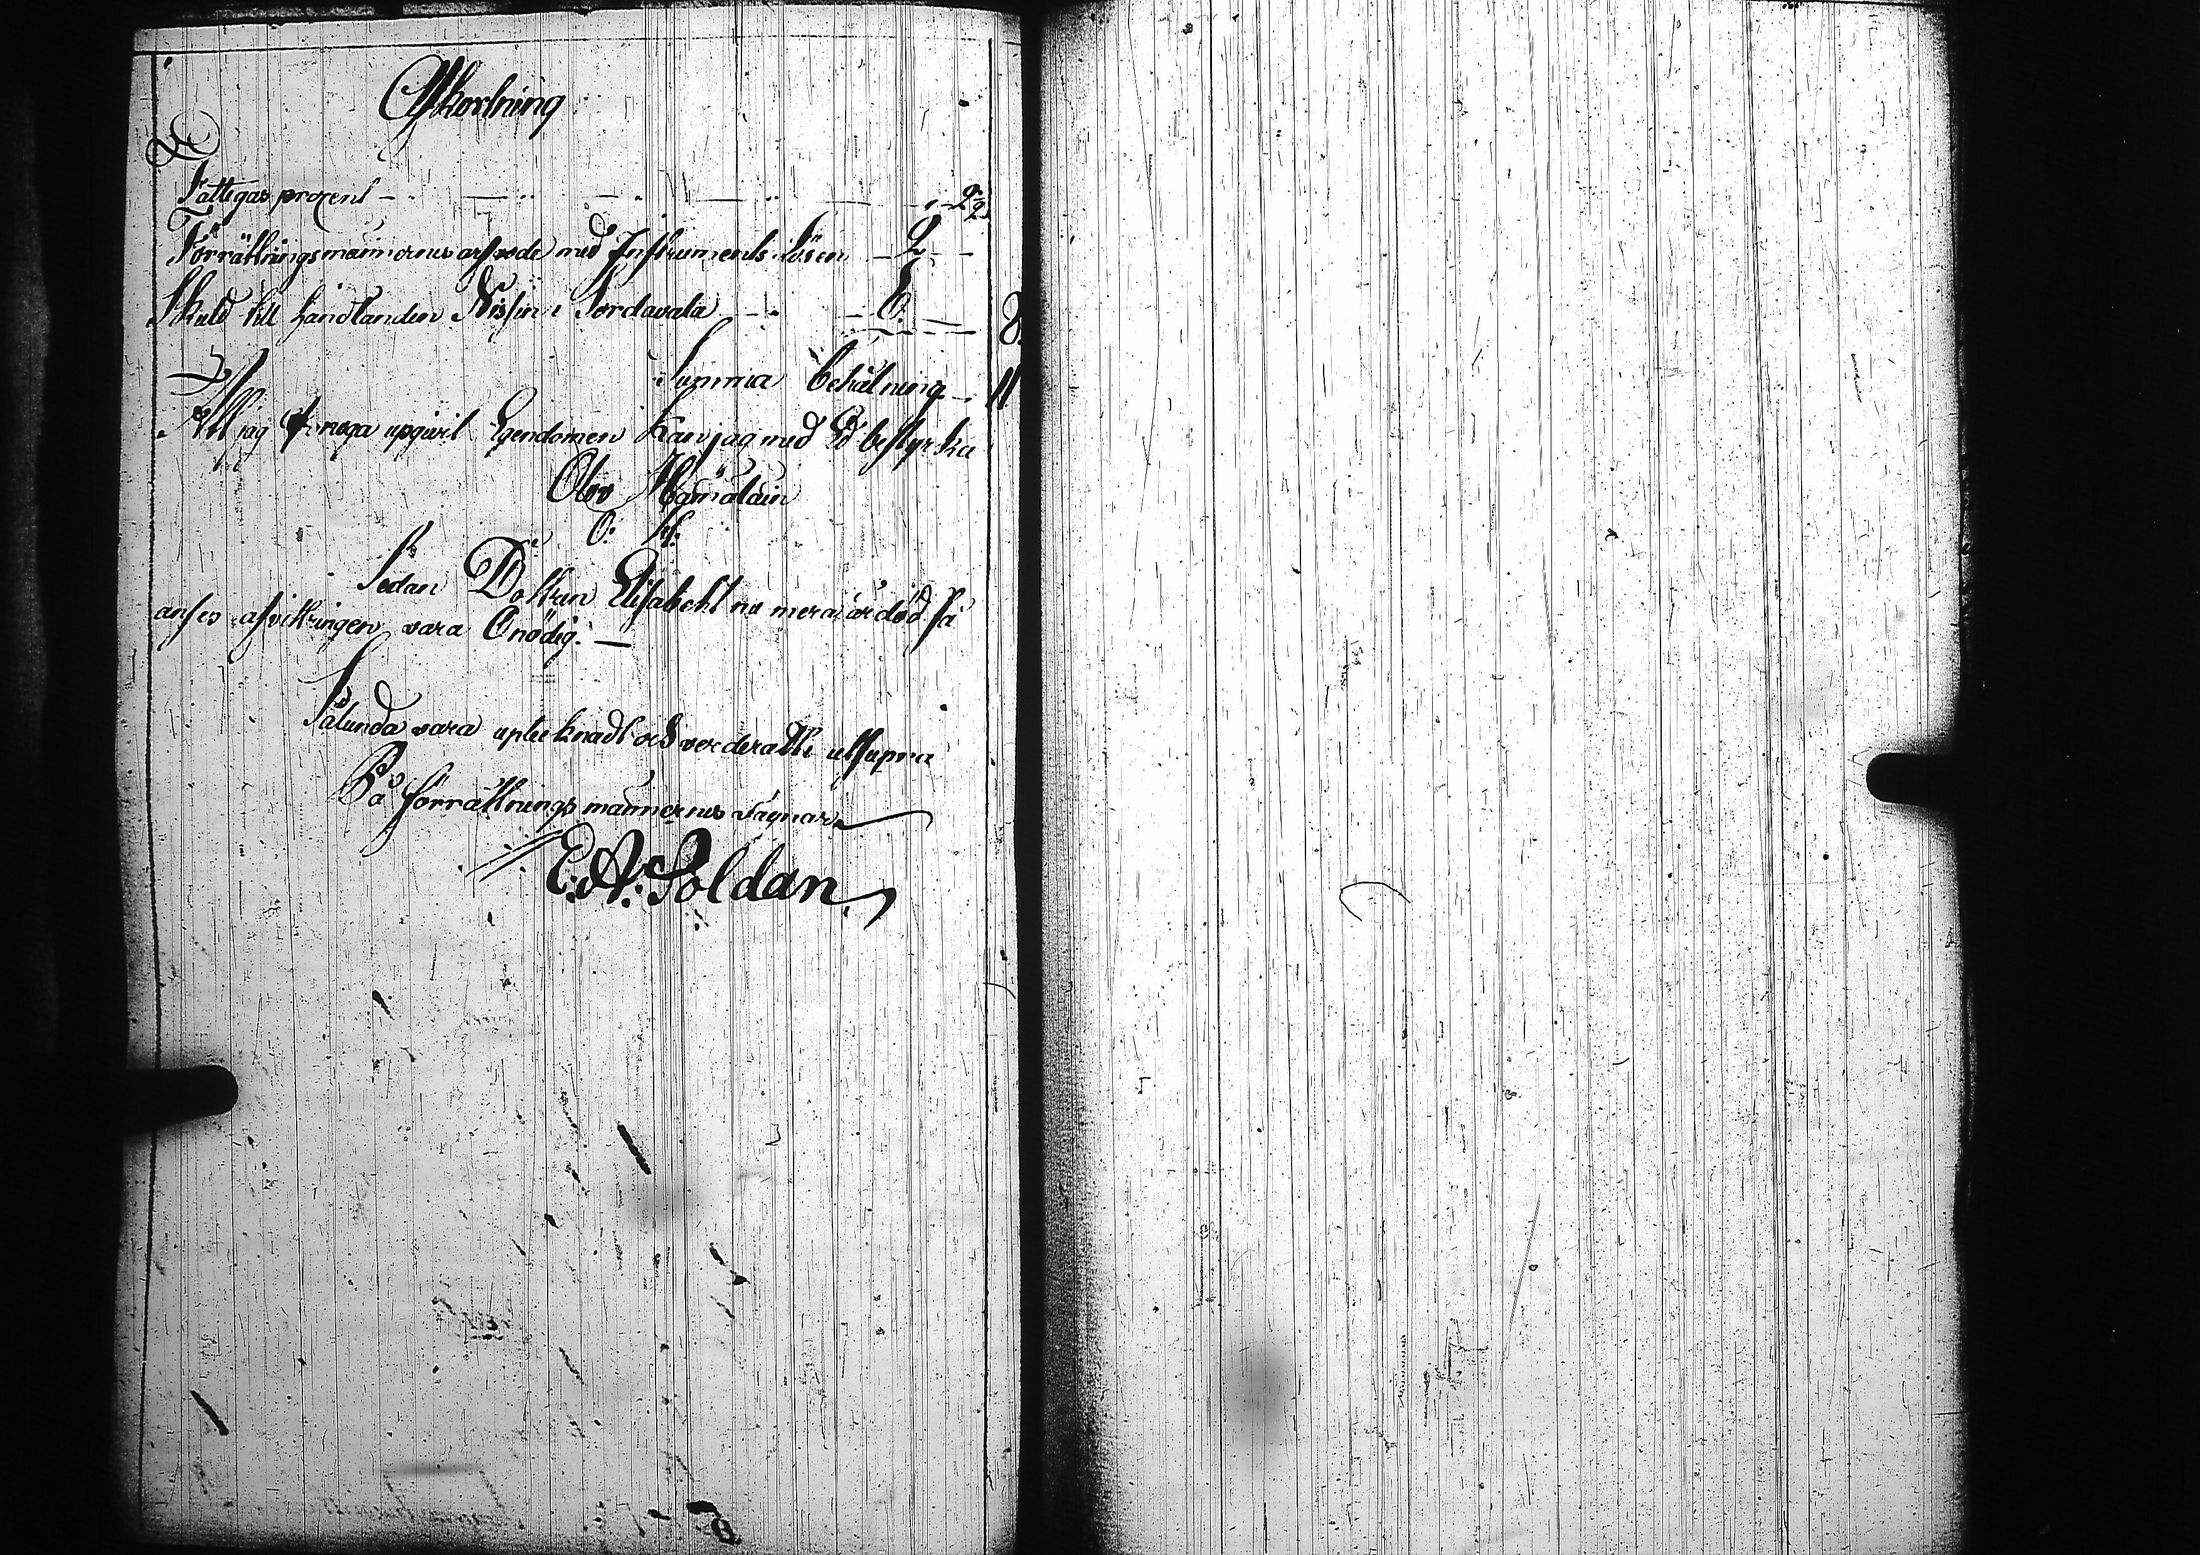 Afkortning
Fattigas procent - - - - 2 1/2
Förrättningsmännernas arfvode med Instruments Lösen 2 -
Skuld till handlanden Nissin i Sordavala - - 6. - 8.
Summa behålning - 11
Att jag noga upgivit Egendomen kan jag med Ed bestyrka
Olov Hämäläin
O: H:
Sedan Dottren Elisabeht nu mera är död så
anses afvittringen vara Onödig. -
Sålunda vara uptecknadt och verderatt utsupra
På förrättningsmännernas vägnar
E: A: Soldan